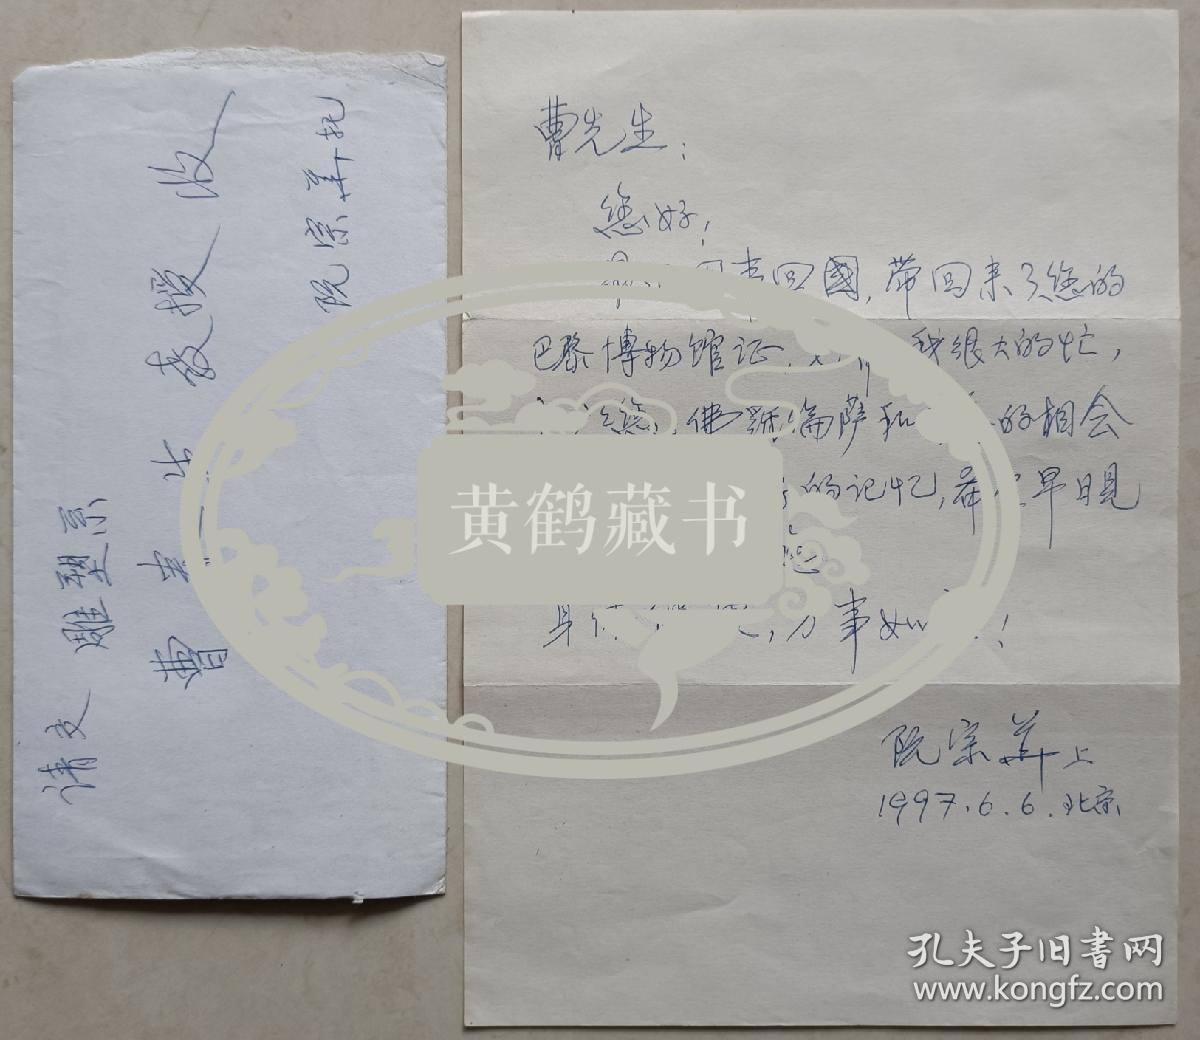 请交
雕塑系
曹春生教授收
阮宗华托
曹先生:
您好!
回國,带回来了您的
巴黎博物馆证, 我很大的忙,
您 佛羅倫萨和 的相会
的记忆, 早日見
您
身 , 万事如 !
阮宗华上
1997.6.6.北京
黄鹤藏书
孔夫子旧書网
www.kongfz.com